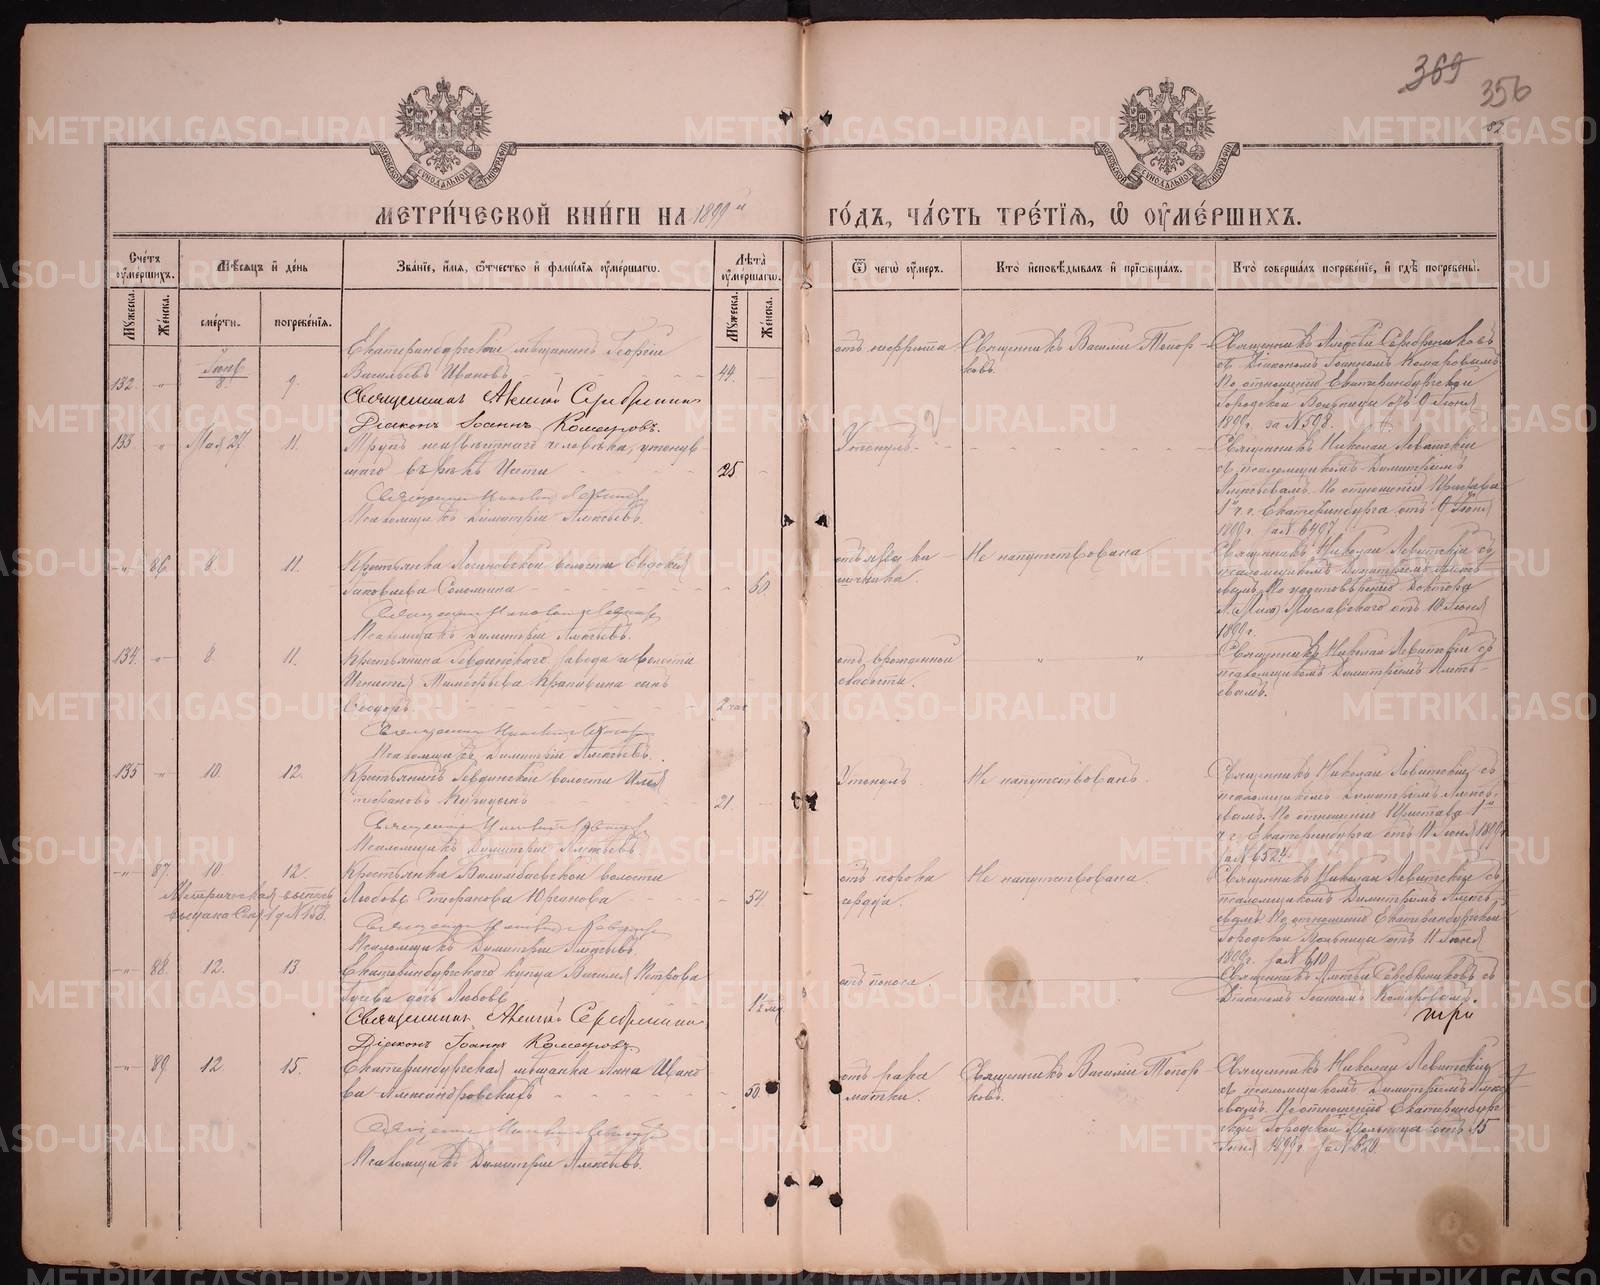 369
356
МОСКОВСКОЙ СУНОДАЛЬНОЙ ТИПОГРАФІИ
МОСКОВСКОЙ СУНОДАЛЬНОЙ ТИПОГРАФІИ
МЕТРИ́ЧЕСКОЙ КНИ́ГИ НА 1899 й ГО́ДЪ, ЧА́СТЬ ТРЕ́ТІѦ, Ѡ ОУМЕ́РШИХЪ.
Счетъ оумершихъ.
Мѣсяцъ и день
Званіе, имя, отчество и фамилія оумершагѡ.
Лѣта оумершагѡ.
Ѿ чегѡ оумеръ.
Кто исповѣдывалъ и пріобщалъ.
Кто совершалъ погребеніе, и гдѣ погребены.
Мужеска.
Женска.
смерти.
погребенія.
Мужеска.
Женска.
132. " Іюнь 8. 9.
Екатеринбургскій мѣщанинъ Георгій
Васильевъ Ивановъ
44.
отъ нефрита
Священникъ Василій Топор-
ковъ.
Священникъ Алексій Серебренниковъ
съ Діакономъ Іоанномъ Комаровымъ
По отношенію Екатеринбургской
Городской Больницы отъ 9 Іюня
1899 г. за № 598.
Священникъ Алексій Серебренник
Діаконъ Іоаннъ Комаровъ.
133. " Мая 27 11.
Трупъ неизвѣстнаго человѣка, утонув-
шаго въ рѣкѣ Исети
25
Утонулъ.
Священникъ Николай Левитскій
съ псаломщикомъ Димитріемъ
Алексѣевымъ. По отношенію Пристава
1й ч. г. Екатеринбурга отъ 9 Іюня
1899 г. за № 6407.
Священникъ Николай Левитскій
Псаломщикъ Димитрій Алексѣевъ.
" 86 8. 11.
Крестьянка волости Евдокія
Іаковлева Соломина
60.
Не напутствована
Священникъ Николай Левитскій съ
псаломщикомъ Димитріемъ Алексѣ-
евымъ. По удостовѣренію Доктора
Миславскаго отъ 10 Іюня
1899 г.
Священникъ Николай Левитскій
Псаломщикъ Димитрій Алексѣевъ.
134. " 8. 11.
Крестьянина Ревдинскаго завода и волости
Игнатія Тимофѣева Крапивина сынъ
Ѳеодоръ.
2 час
отъ врожденной
слабости.
" "
Священникъ Николай Левитскій съ
псаломщикомъ Димитріемъ Алексѣ-
евымъ.
Священникъ Николай Левитскій
Псаломщикъ Димитрій Алексѣевъ.
135 " 10. 12.
Крестьянинъ Ревдинской волости Илія
21.
Утонулъ
Не напутствованъ.
Священникъ Николай Левитскій съ
псаломщикомъ Димитріемъ Алексѣ-
евымъ. По отношенію Пристава 1й
ч. г. Екатеринбурга отъ 11 Іюня 1899 г.
за № 6524.
Священникъ Николай Левитскій
Псаломщикъ Димитрій Алексѣевъ.
" 87. 10 12.
Метрическая выпись
выдана Сент. 1 д № 158.
Крестьянка Билимбаевской волости
Любовь Стефанова Юрганова
54
отъ порока
сердца.
Не напутствована.
Священникъ Николай Левитскій съ
псаломщикомъ Димитріемъ Алексѣ-
евымъ. По отношенію Екатеринбургской
Городской Больницы отъ 11 Іюня
1899 г. за № 610
Священникъ Николай Левитскій
Псаломщикъ Димитрій Алексѣевъ.
" 88. 12. 13.
Екатеринбургскаго купца Василія Петрова
Гусева дочь Любовь
отъ поноса.
"
Священникъ Алексій Серебренниковъ съ
Діакономъ Іоанномъ Комаровымъ.
три
Священникъ Алексій Серебренник
Діаконъ Іоаннъ Комаровъ
" 89 12 15.
Екатеринбургская мѣщанка Анна Ивано-
ва Александровскихъ
50.
отъ рака
матки.
Священникъ Василій Топор-
ковъ.
Священникъ Николай Левитскій
съ псаломщикомъ Димитріемъ Алексѣ-
евымъ. По отношенію Екатеринбург-
ской Городской Больницы отъ 15
Іюня 1899 г. за № 620.
Священникъ Николай Левитскій
Псаломщикъ Димитрій Алексѣевъ.
METRIKI.GASO-URAL.RU